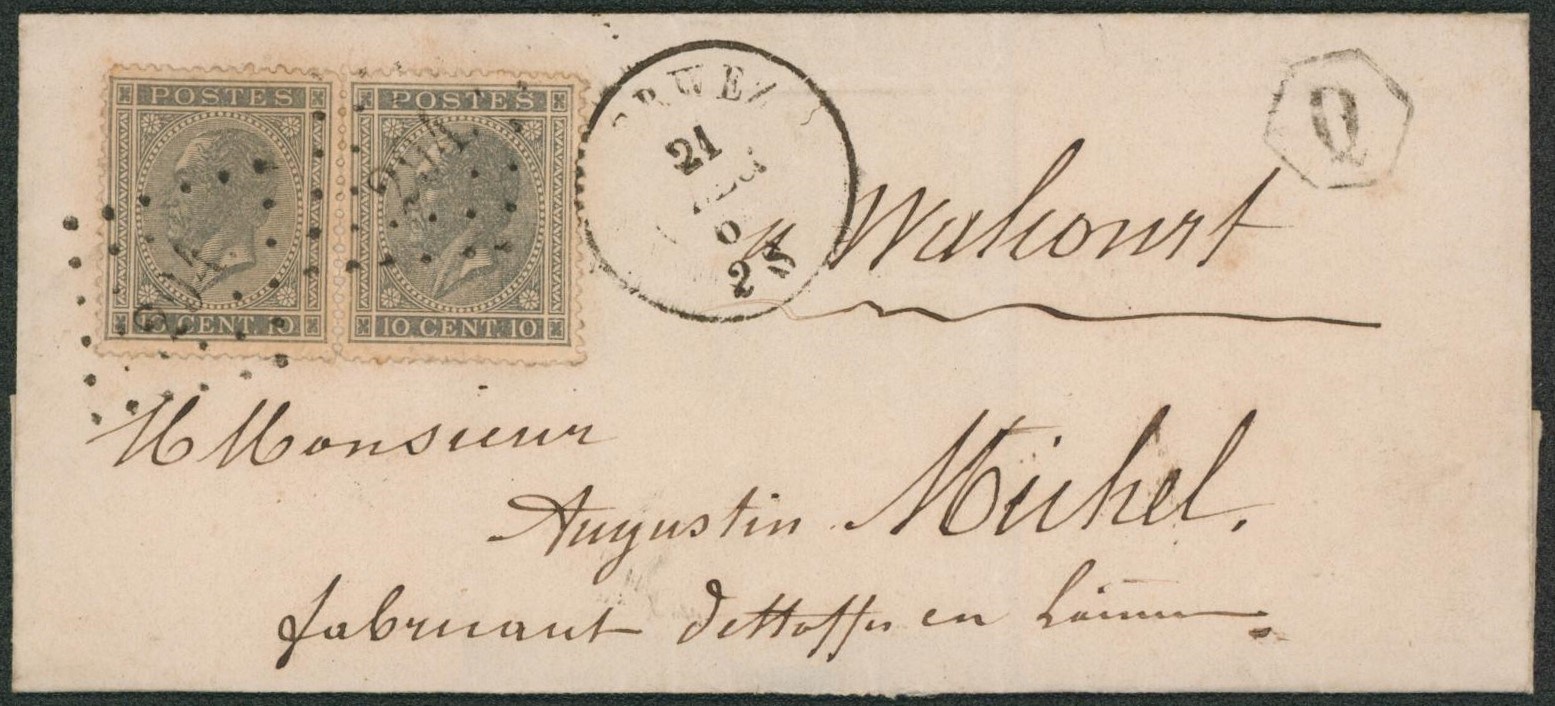 POSTES POSTES
10 CENT. 10 10 CENT. 10
21
2 S
Q
à Walcourt
Monsieur
Augustin Michel.
fabricant d'ettoffes en laine